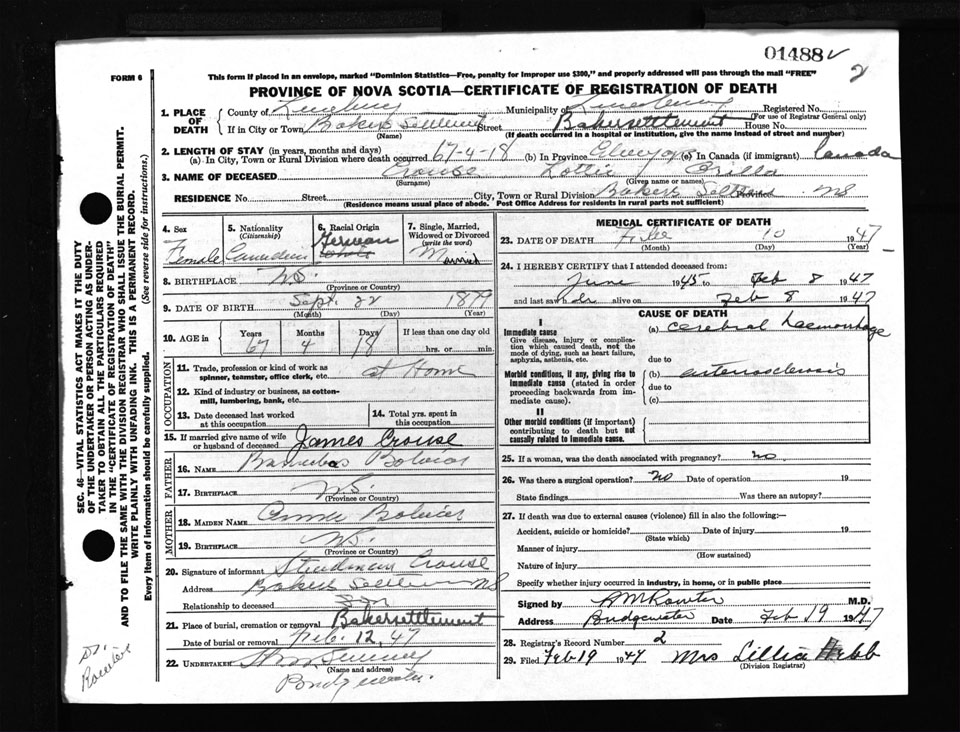 01488 v
2
FORM 6
This form if placed in an envelope, marked "Dominion Statistics—Free, penalty for improper use $300," and properly addressed will pass through the mail "FREE"
PROVINCE OF NOVA SCOTIA—CERTIFICATE OF REGISTRATION OF DEATH
1. PLACE OF DEATH
County of Lunenburg Municipality of Lunenburg Registered No.
(For use of Registrar General only)
If in City or Town Bakers Settlement Street Bakersettlement House No.
(Name) (If death occurred in a hospital or institution, give the name instead of street and number)
2. LENGTH OF STAY (in years, months and days)
(a) In City, Town or Rural Division where death occurred 67-4-18 (b) In Province (c) In Canada (if immigrant) Canada
3. NAME OF DECEASED Crouse Lottie Orilla
(Surname) (Given name or names)
RESIDENCE No. Street City, Town or Rural Division Bakers Settle Province NS
(Residence means usual place of abode. Post Office Address for residents in rural parts not sufficient)
4. Sex Female
5. Nationality (Citizenship) Canadian
6. Racial Origin German
7. Single, Married, Widowed or Divorced (write the word) Married
8. BIRTHPLACE N.S.
(Province or Country)
9. DATE OF BIRTH Sept. 22 1879
(Month) (Day) (Year)
10. AGE in Years 67 Months 4 Days 18 If less than one day old hrs. or min.
OCCUPATION
11. Trade, profession or kind of work as spinner, teamster, office clerk, etc. at Home
12. Kind of industry or business, as cotton-mill, lumbering, bank, etc.
13. Date deceased last worked at this occupation
14. Total yrs. spent in this occupation
15. If married give name of wife or husband of deceased James Crouse
FATHER
16. NAME Barnabas
17. BIRTHPLACE N.S.
(Province or Country)
MOTHER
18. MAIDEN NAME Annie
19. BIRTHPLACE N.S.
(Province or Country)
20. Signature of informant Steadman Crouse
Address Bakers Settlem NS
Relationship to deceased Son
21. Place of burial, cremation or removal Bakersettlement
Date of burial or removal Feb. 12, 47
22. UNDERTAKER
(Name and address)
Bridgewater.
MEDICAL CERTIFICATE OF DEATH
23. DATE OF DEATH Feb 10 1947
(Month) (Day) (Year)
24. I HEREBY CERTIFY that I attended deceased from:
June 1945 to Feb 8 1947
and last saw her alive on Feb 8 1947
CAUSE OF DEATH
I
Immediate cause
Give disease, injury or complication which caused death, not the mode of dying, such as heart failure, asphyxia, asthenia, etc.
(a) cerebral haemorrhage
due to
Morbid conditions, if any, giving rise to immediate cause (stated in order proceeding backwards from immediate cause).
(b) arteriosclerosis
due to
(c)
II
Other morbid conditions (if important) contributing to death but not causally related to immediate cause.
25. If a woman, was the death associated with pregnancy? no
26. Was there a surgical operation? no Date of operation 19
State findings Was there an autopsy?
27. If death was due to external causes (violence) fill in also the following:—
Accident, suicide or homicide? Date of injury 19
(State which)
Manner of injury
(How sustained)
Nature of injury
Specify whether injury occurred in industry, in home, or in public place
Signed by M.D.
Address Bridgewater Date Feb 19 1947
28. Registrar's Record Number 2
29. Filed Feb 19 1947 Mrs Lillia Hebb
(Division Registrar)
SEC. 46—VITAL STATISTICS ACT MAKES IT THE DUTY
OF THE UNDERTAKER OR PERSON ACTING AS UNDER-
TAKER TO OBTAIN ALL THE PARTICULARS REQUIRED
IN THE "CERTIFICATE OF REGISTRATION OF DEATH"
AND TO FILE THE SAME WITH THE DIVISION REGISTRAR WHO SHALL ISSUE THE BURIAL PERMIT.
WRITE PLAINLY WITH UNFADING INK. THIS IS A PERMANENT RECORD.
Every item of information should be carefully supplied. (See reverse side for instructions.)
Dr.